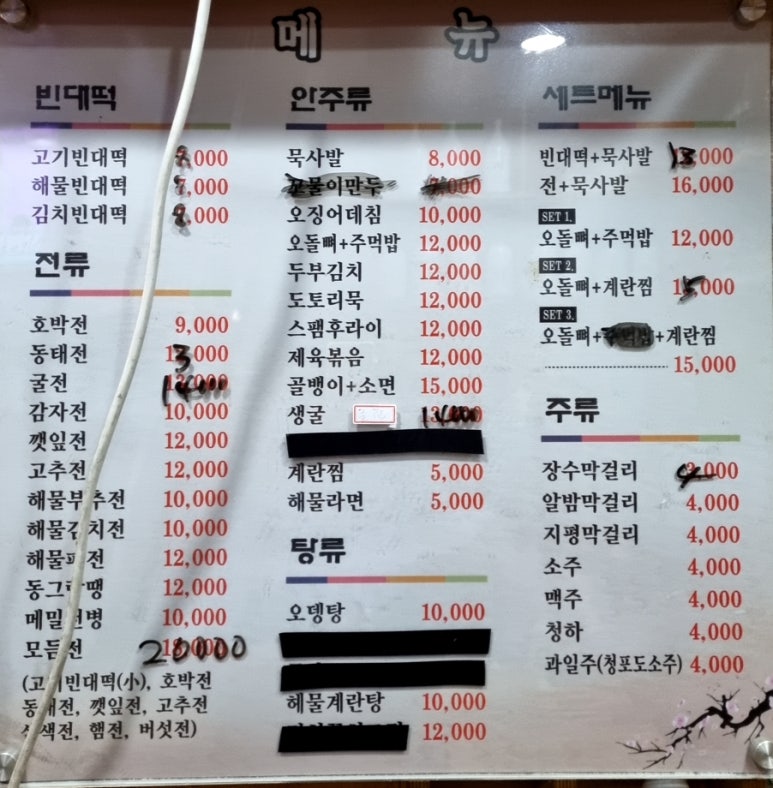 메뉴
빈대떡
고기빈대떡 8,000
해물빈대떡 ,000
김치빈대떡 8,000
전류
호박전 9,000
동태전 13,000
굴전 14000
감자전 10,000
깻잎전 12,000
고추전 12,000
해물부추전 10,000
해물김치전 10,000
해물파전 12,000
동그랑땡 12,000
메밀전병 10,000
모듬전 20000
(고기빈대떡(小), 호박전
동태전, 깻잎전, 고추전
삼색전, 햄전, 버섯전)
안주류
묵사발 8,000
오징어데침 10,000
오돌뼈+주먹밥 12,000
두부김치 12,000
도토리묵 12,000
스팸후라이 12,000
제육볶음 12,000
골뱅이+소면 15,000
생굴
계란찜 5,000
해물라면 5,000
탕류
오뎅탕 10,000
해물계란탕 10,000
12,000
세트메뉴
빈대떡+묵사발 13000
전+묵사발 16,000
SET 1.
오돌뼈+주먹밥 12,000
SET 2.
오돌뼈+계란찜 15,000
SET 3.
오돌뼈+주먹밥+계란찜
15,000
주류
장수막걸리 4,000
알밤막걸리 4,000
지평막걸리 4,000
소주 4,000
맥주 4,000
청하 4,000
과일주(청포도소주) 4,000